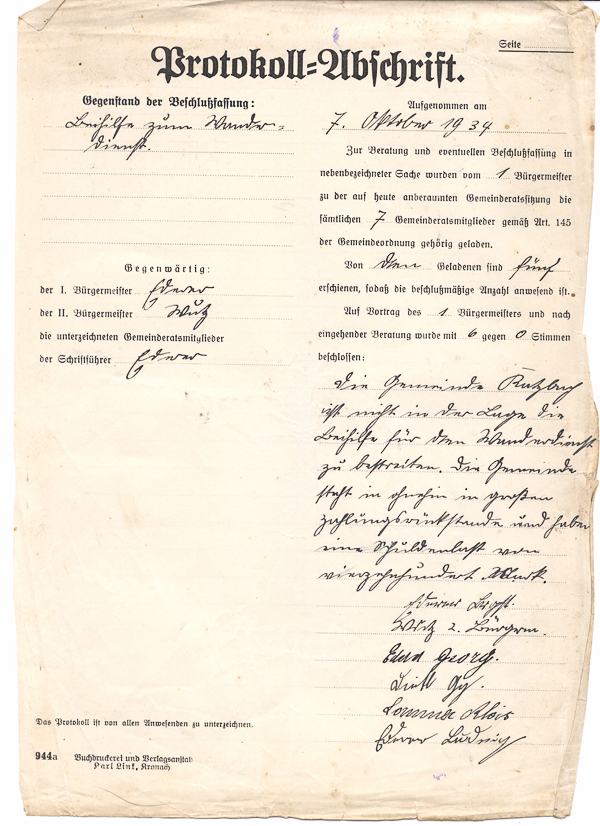 Seite
Protokoll=Abschrift.
Gegenstand der Beschlußfassung:
Beihilfe zum Wander-
dienst.
Gegenwärtig:
der I. Bürgermeister Ederer
der II. Bürgermeister Wutz
die unterzeichneten Gemeinderatsmitglieder
der Schriftführer Ederer
Das Protokoll ist von allen Anwesenden zu unterzeichnen.
944a Buchdruckerei und Verlagsanstalt
Karl Link, Kronach
Aufgenommen am
7. Oktober 1934
Zur Beratung und eventuellen Beschlußfassung in
nebenbezeichneter Sache wurden vom 1 Bürgermeister
zu der auf heute anberaumten Gemeinderatssitzung die
sämtlichen 7 Gemeinderatsmitglieder gemäß Art. 145
der Gemeindeordnung gehörig geladen.
Von den Geladenen sind fünf
erschienen, sodaß die beschlußmäßige Anzahl anwesend ist.
Auf Vortrag des 1 Bürgermeisters und nach
eingehender Beratung wurde mit 6 gegen 0 Stimmen
beschlossen:
Die Gemeinde Katzbach
ist nicht in der Lage die
Beihilfe für den Wanderdienst
zu bestreiten. Die Gemeinde
steht in ohnehin in großen
Zahlungsrückstande und haben
eine Schuldenlast von
vierzehnhundert Mark.
Ederer Brgst.
Wutz 2. Bürgerm.
Georg.
Gg.
Alois
Ederer Ludwig